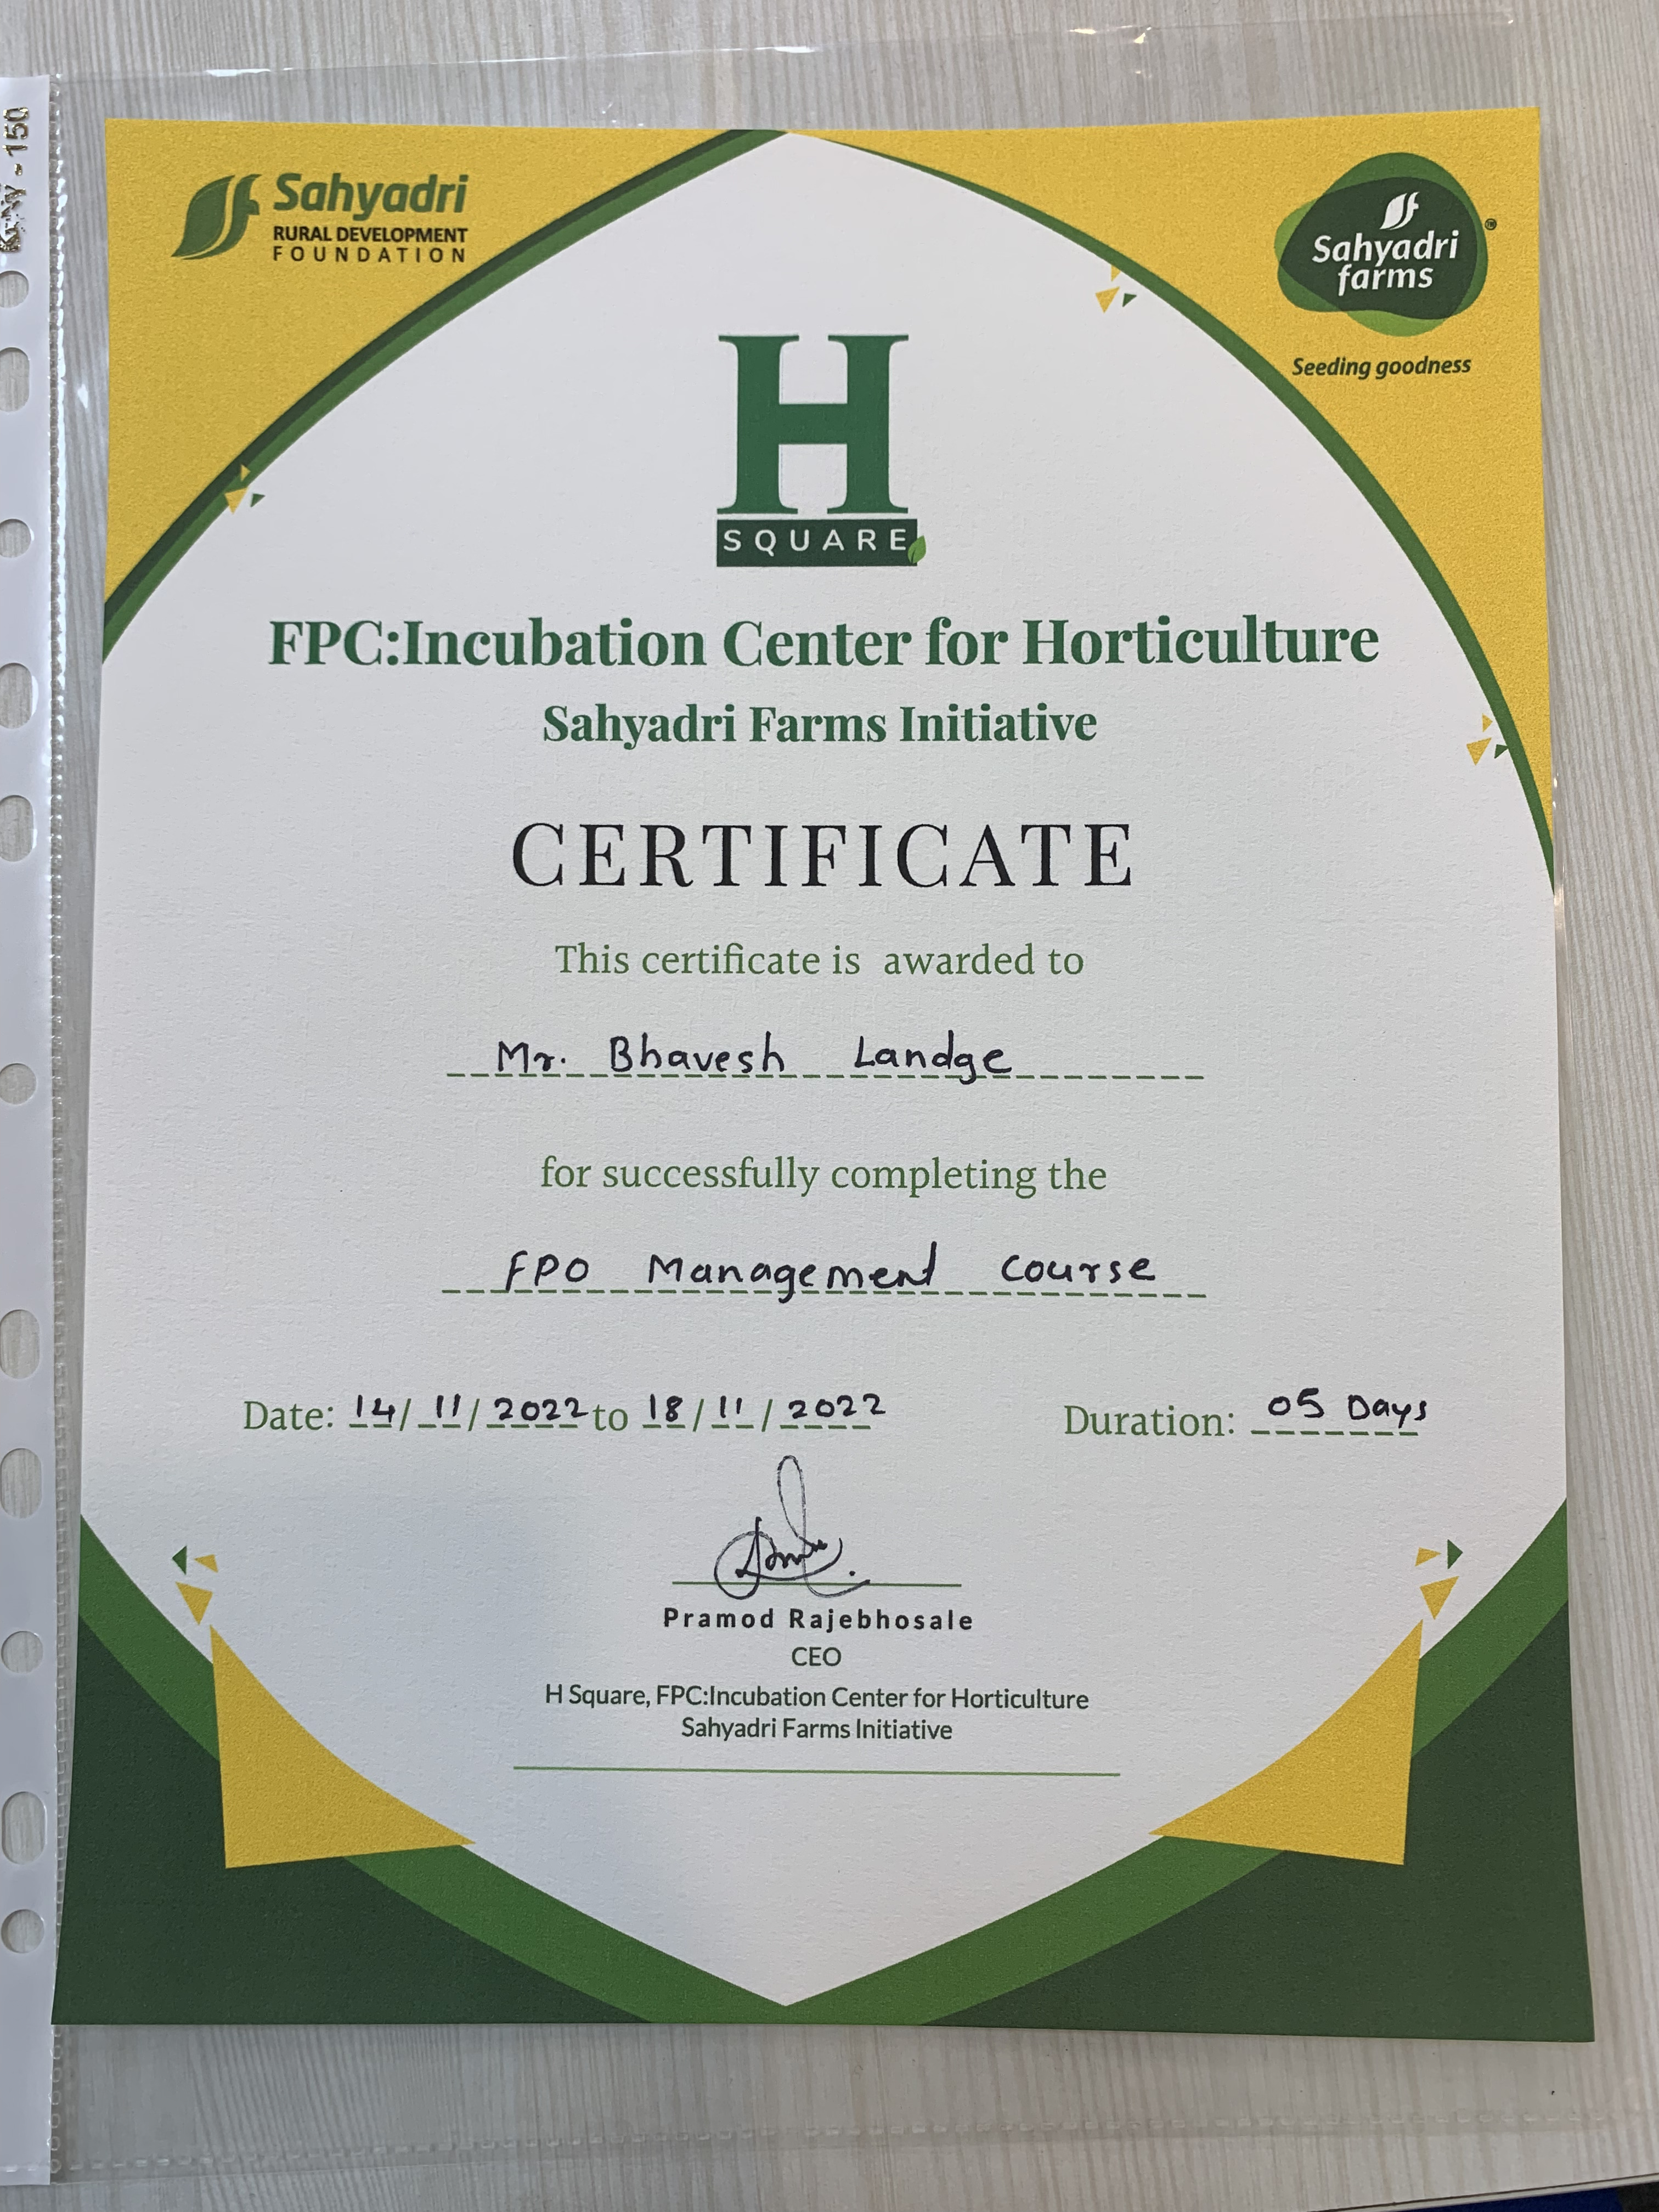 KENY - 150
Sahyadri
RURAL DEVELOPMENT
FOUNDATION
Sahyadri
farms
®
Seeding goodness
H
SQUARE
FPC:Incubation Center for Horticulture
Sahyadri Farms Initiative
CERTIFICATE
This certificate is awarded to
Mr. Bhavesh Landge
for successfully completing the
FPO Management Course
Date: 14/11/2022 to 18/11/2022
Duration: 05 Days
Pramod Rajebhosale
CEO
H Square, FPC:Incubation Center for Horticulture
Sahyadri Farms Initiative